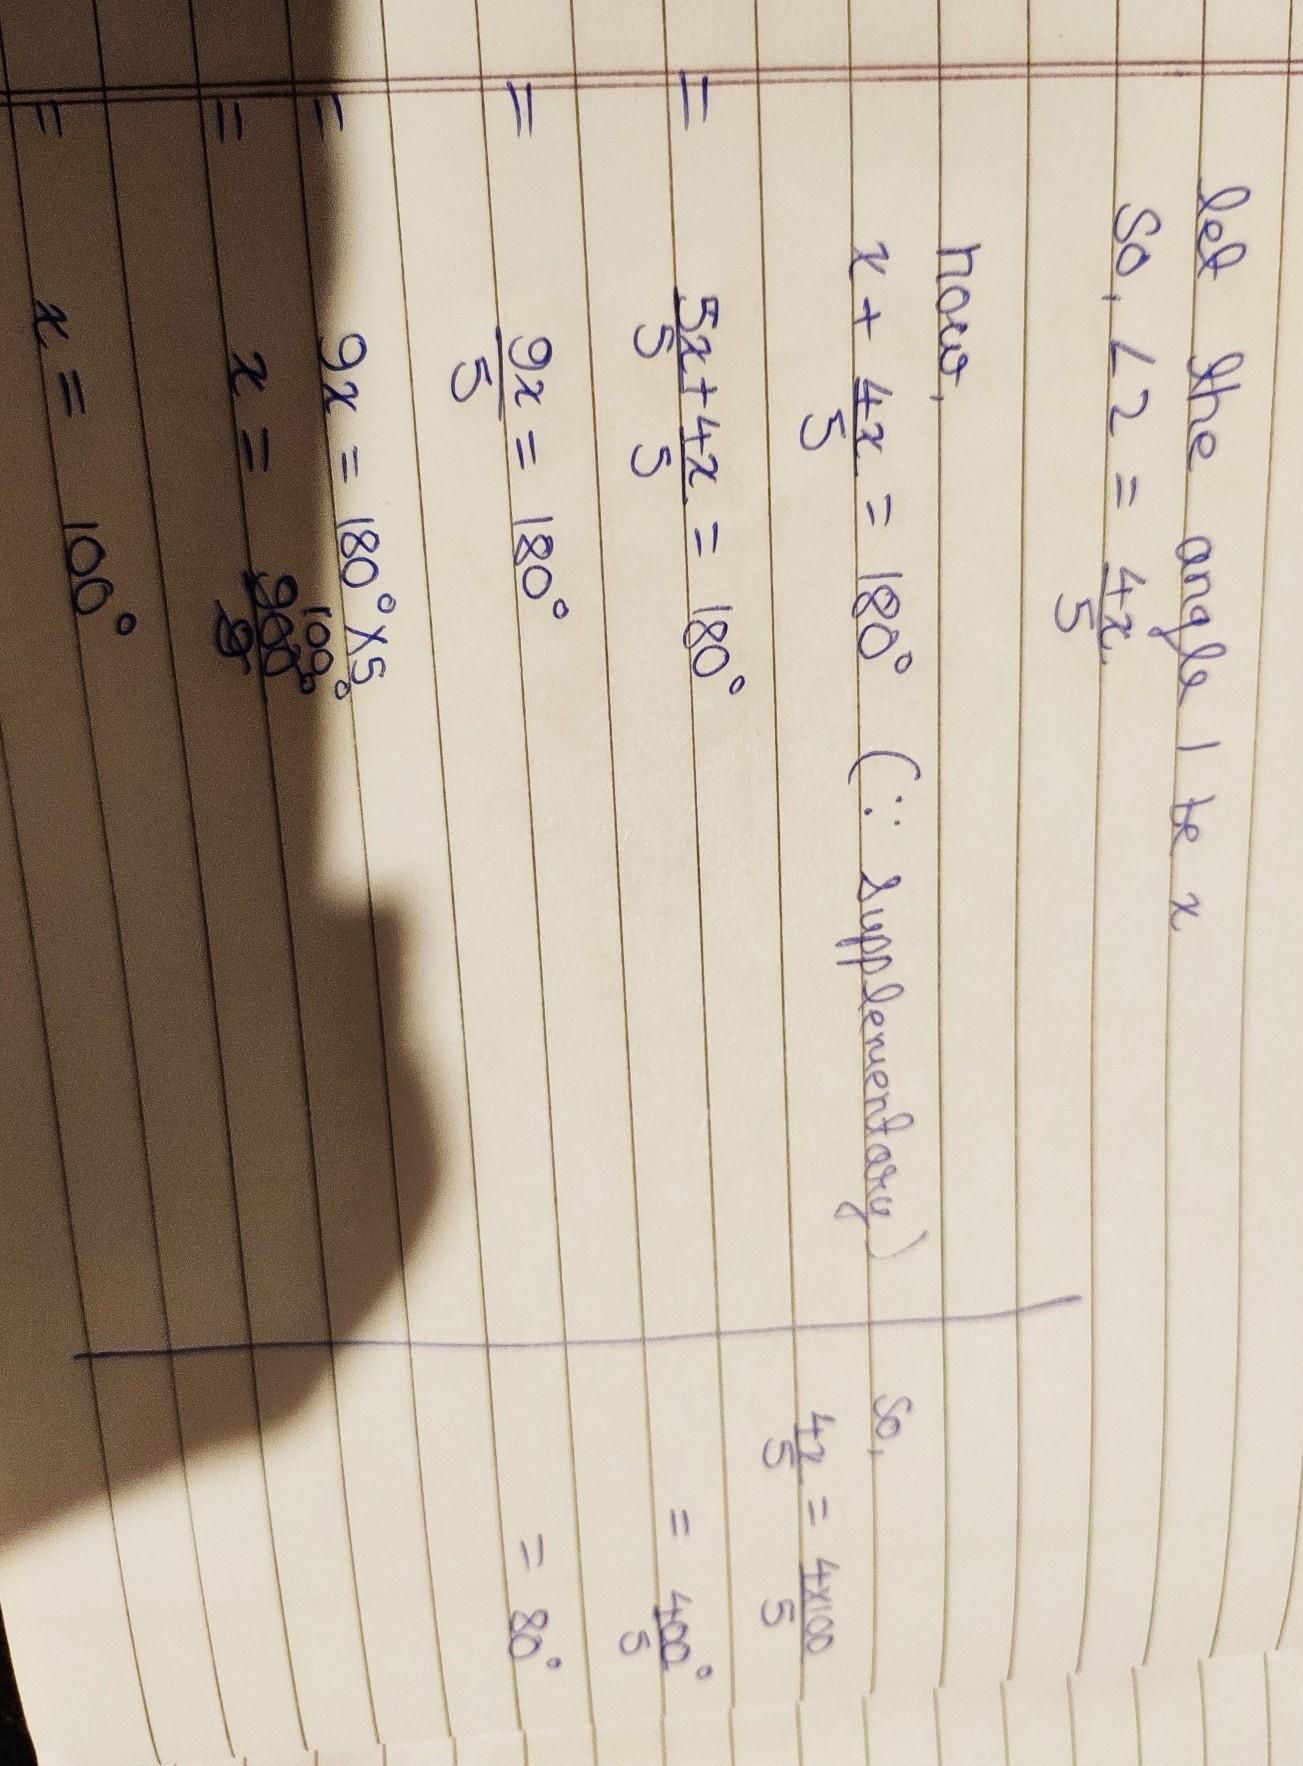 let the angle 1 be x
So, ∠2 = 4x/5
now,
x + 4x/5 = 180° (∵ supplementary)
= 5x/5 + 4x/5 = 180°
= 9x/5 = 180°
= 9x = 180° x 5
= x = 900°/9 100°
= x = 100°
So,
4x/5 = 4x100/5
= 400°/5
= 80°